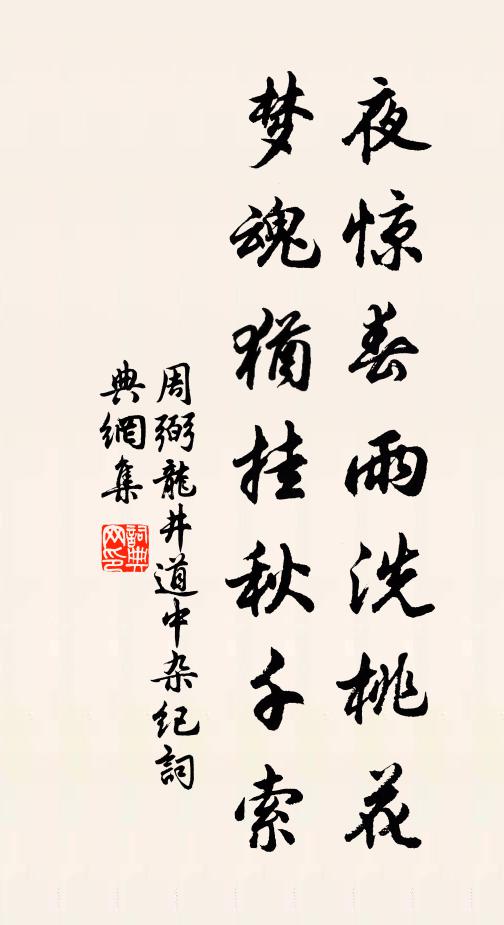 夜惊春雨洗桃花
梦魂犹挂秋千索
周弼龍井道中杂纪詞
典網集
詞典
网印